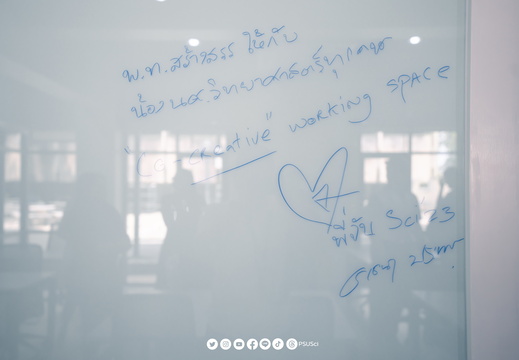 พ.ท.สร้างสรร ให้กับ
น้อง นศ.วิทยาศาสตร์ทุกคน
"Co-creative" working space
Sci 23
PSUSci